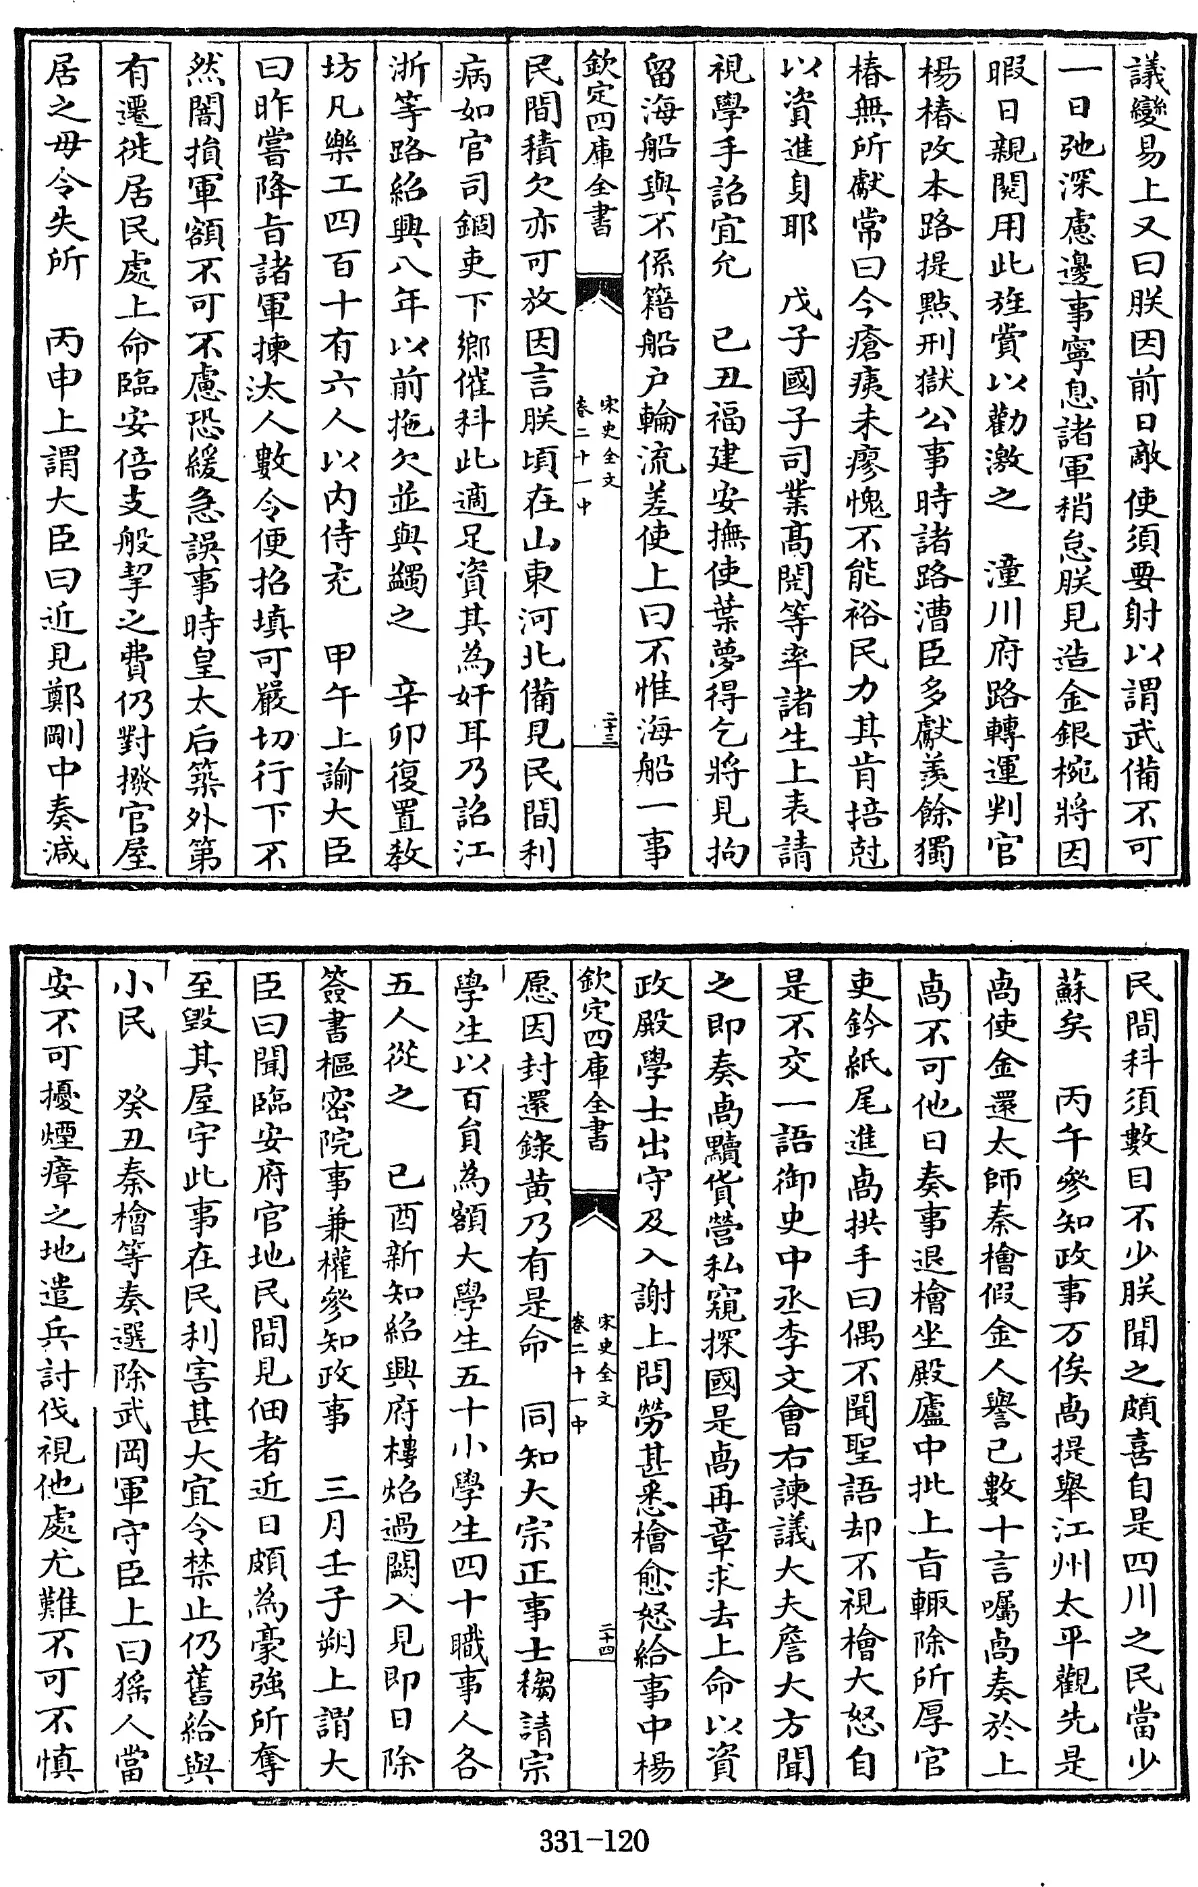 議變易上又曰朕因前日敵使須要射以謂武備不可
一日弛深慮邊事寧息諸軍稍怠朕見造金銀椀將因
暇日親閱用此旌賞以勸激之　潼川府路轉運判官
楊椿改本路提點刑獄公事時諸路漕臣多獻羨餘獨
椿無所獻常曰今瘡痍未瘳愧不能裕民力其肯掊尅
以資進身耶　戊子國子司業高閌等率諸生上表請
視學手詔宜允　己丑福建安撫使葉夢得乞將見拘
留海船與不係籍船户輪流差使上曰不惟海船一事
欽定四庫全書　宋史全文卷二十一中　二十三
民間積欠亦可放因言朕頃在山東河北備見民間利
病如官司錮吏下鄉催科此適足資其為奸耳乃詔江
浙等路紹興八年以前拖欠並與蠲之　辛卯復置教
坊凡樂工四百十有六人以内侍充　甲午上諭大臣
曰昨嘗降旨諸軍揀汰人數令便招填可嚴切行下不
然闇損軍額不可不慮恐緩急誤事時皇太后築外第
有遷徙居民處上命臨安倍支般挈之費仍對撥官屋
居之毋令失所　丙申上謂大臣曰近見鄭剛中奏減
民間科須數目不少朕聞之頗喜自是四川之民當少
蘇矣　丙午參知政事万俟卨提舉江州太平觀先是
卨使金還太師秦檜假金人譽己數十言囑卨奏於上
卨不可他日奏事退檜坐殿廬中批上旨輒除所厚官
吏鈐紙尾進卨拱手曰偶不聞聖語却不視檜大怒自
是不交一語御史中丞李文會右諫議大夫詹大方聞
之即奏卨黷貨營私窺探國是卨再章求去上命以資
政殿學士出守及入謝上問勞甚悉檜愈怒給事中楊
欽定四庫全書　宋史全文卷二十一中　二十四
愿因封還錄黄乃有是命　同知大宗正事士𥠖請宗
學生以百員為額大學生五十小學生四十職事人各
五人從之　己酉新知紹興府樓炤過闕入見即日除
簽書樞密院事兼權參知政事　三月壬子朔上謂大
臣曰聞臨安府官地民間見佃者近日頗為豪強所奪
至毀其屋宇此事在民利害甚大宜令禁止仍舊給與
小民　癸丑秦檜等奏選除武岡軍守臣上曰猺人當
安不可擾煙瘴之地遣兵討伐視他處尤難不可不慎
331-120